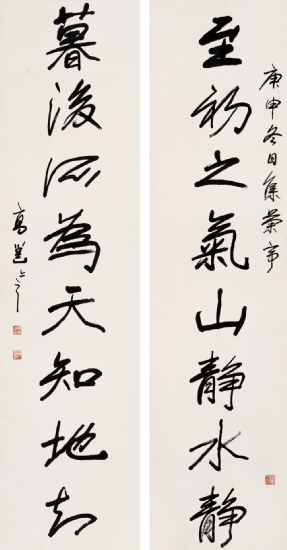 庚申冬日集蘭亭
至初之氣山靜水靜
暮後所為天知地知
高邕